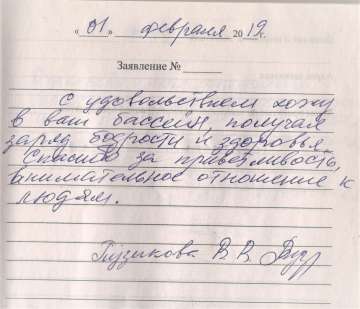 « 01 » февраля 2019г.
Заявление № ____
С удовольствием хожу
в ваш бассейн, получая
заряд бодрости и здоровья.
Спасибо за приветливость,
внимательное отношение к
людям.
Пузикова В. В.